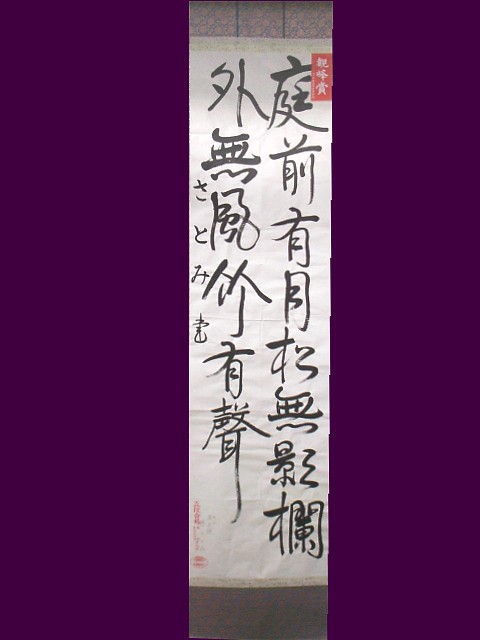 庭前有月松無影欄
外無風竹有聲
さとみ書
親峰賞